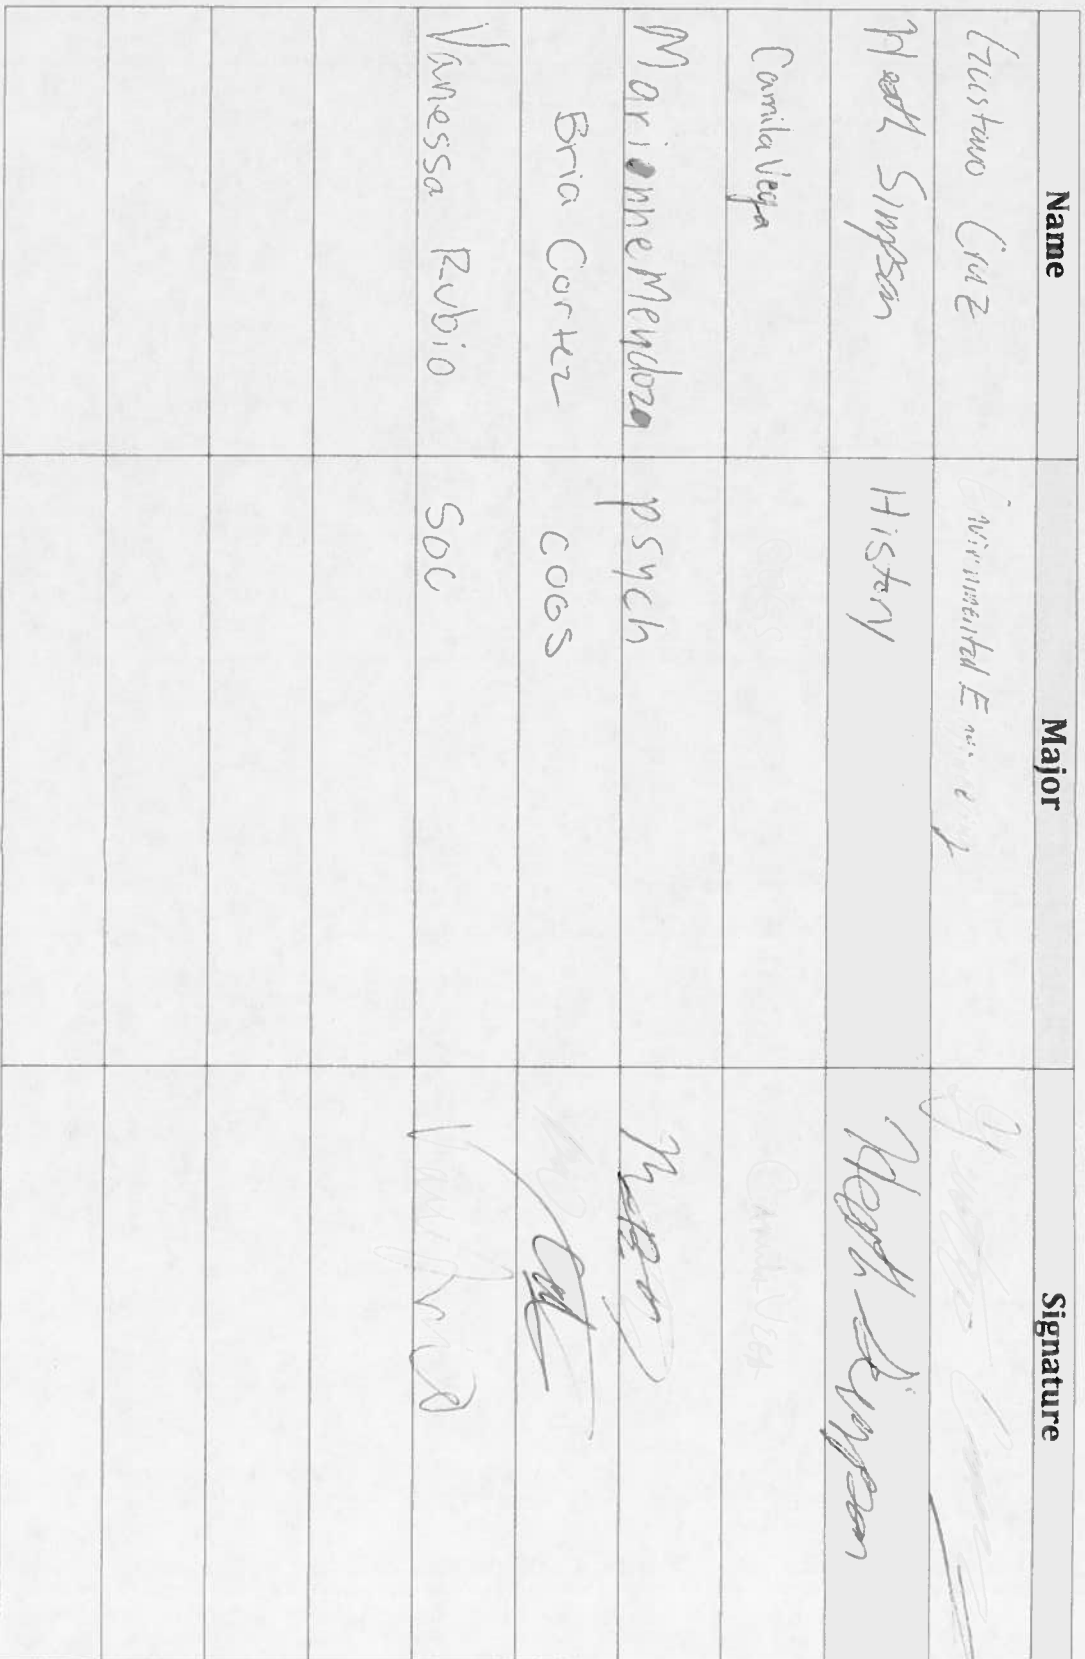 Name Major Signature
Gustavo Cruz Environmental
Heath Simpson History Heath Simpson
Camila Vega Camila Vega
Marianne Mendoza psych
Bria Cortez COGS
Vanessa Rubio Soc